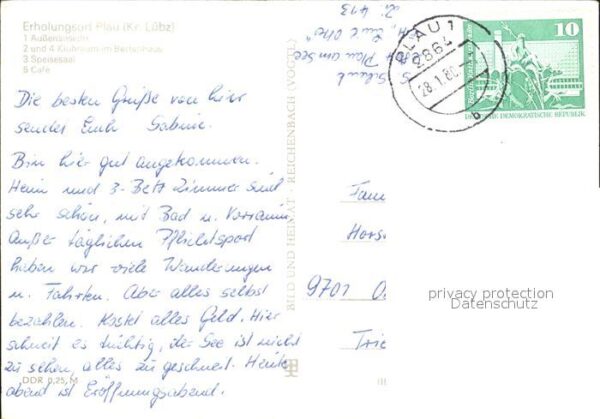 Erholungsort Plau (Kr. Lübz)
1 Außenansicht
2 und 4 Klubraum im Bettenhaus
3 Speisesaal
5 Café
Die besten Grüße von hier
sendet Euch Sabine.
Bin hier gut angekommen.
Heim und 3-Bett Zimmer sind
sehr schön, mit Bad u. Vorraum.
Außer täglichen Pflichtsport
haben wir viele Wanderungen
u. Fahrten. Aber alles selbst
bezahlen. Kostet alles Geld. Hier
schneit es tüchtig, der See ist nicht
zu sehen, alles zu geschneit. Heute
abend ist Eröffnungsabend.
DDR 0,25 M
BILD UND HEIMAT REICHENBACH (VOGTL)
Z. 413
Plau am See
PLAU 1
2864
28.1.80
b
10
DEUTSCHE DEMOKRATISCHE REPUBLIK
Fam
Hors
9701 O
Trie
privacy protection
Datenschutz